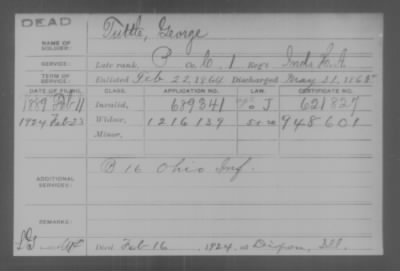 DEAD
NAME OF SOLDIER: Tuttle, George
SERVICE: Late rank, P Co. C. 1 Reg't Ind. H. A
TERM OF SERVICE: Enlisted Feb 22, 1864 Discharged May 31, 1865
DATE OF FILING. CLASS. APPLICATION NO. LAW. CERTIFICATE NO.
1889 Feb 11 Invalid, 689341 J 621827
1924 Feb 23 Widow, 1216139 948601
Minor,
ADDITIONAL SERVICES: B 16 Ohio Inf.
REMARKS:
Died Feb 16 1924, at Dixon, Ill